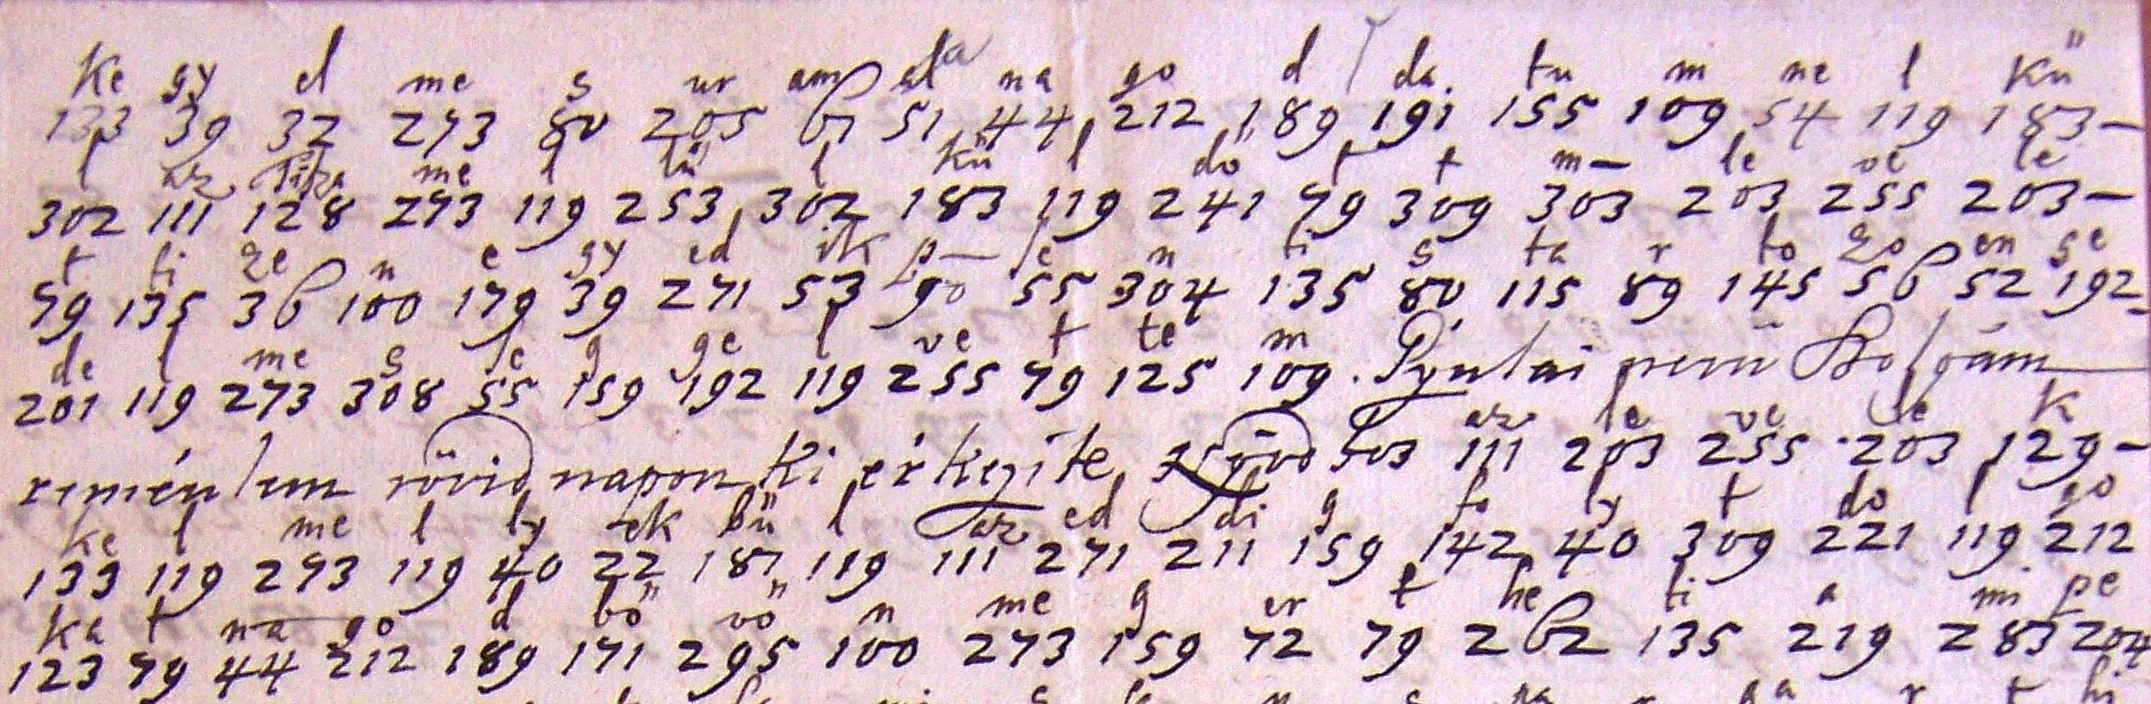 Ke gy el me s ur am al a na go d da. tu m ne l Kü
133 39 32 273 80 205 61 51 44 212 189 191 155 109 54 119 183-
l az Tiha me l lü l Kü l dö t t m- le ve le
302 111 128 273 119 253 302 183 119 241 79 309 303 203 255 203-
t ti ze n e gy ed ik p- le n ti s ta r to zo en ge
79 135 36 100 179 39 271 53 90 55 304 135 80 115 89 145 56 52 192-
de l me s le g ge l ve t te m
201 119 273 308 55 159 192 119 255 79 125 109.
az le ve le K
remémlem rövid napon Ki érkezik 111 203 255 203 129-
Ke l me l ly ek bü l az ed di g fo ly t do l go
133 119 273 119 40 22 187 119 111 271 211 159 142 40 309 221 119 212
Ka t na go d bö vö n me g er t he ti a mi pe
123 79 44 212 189 171 295 100 273 159 72 79 262 135 219 283 204